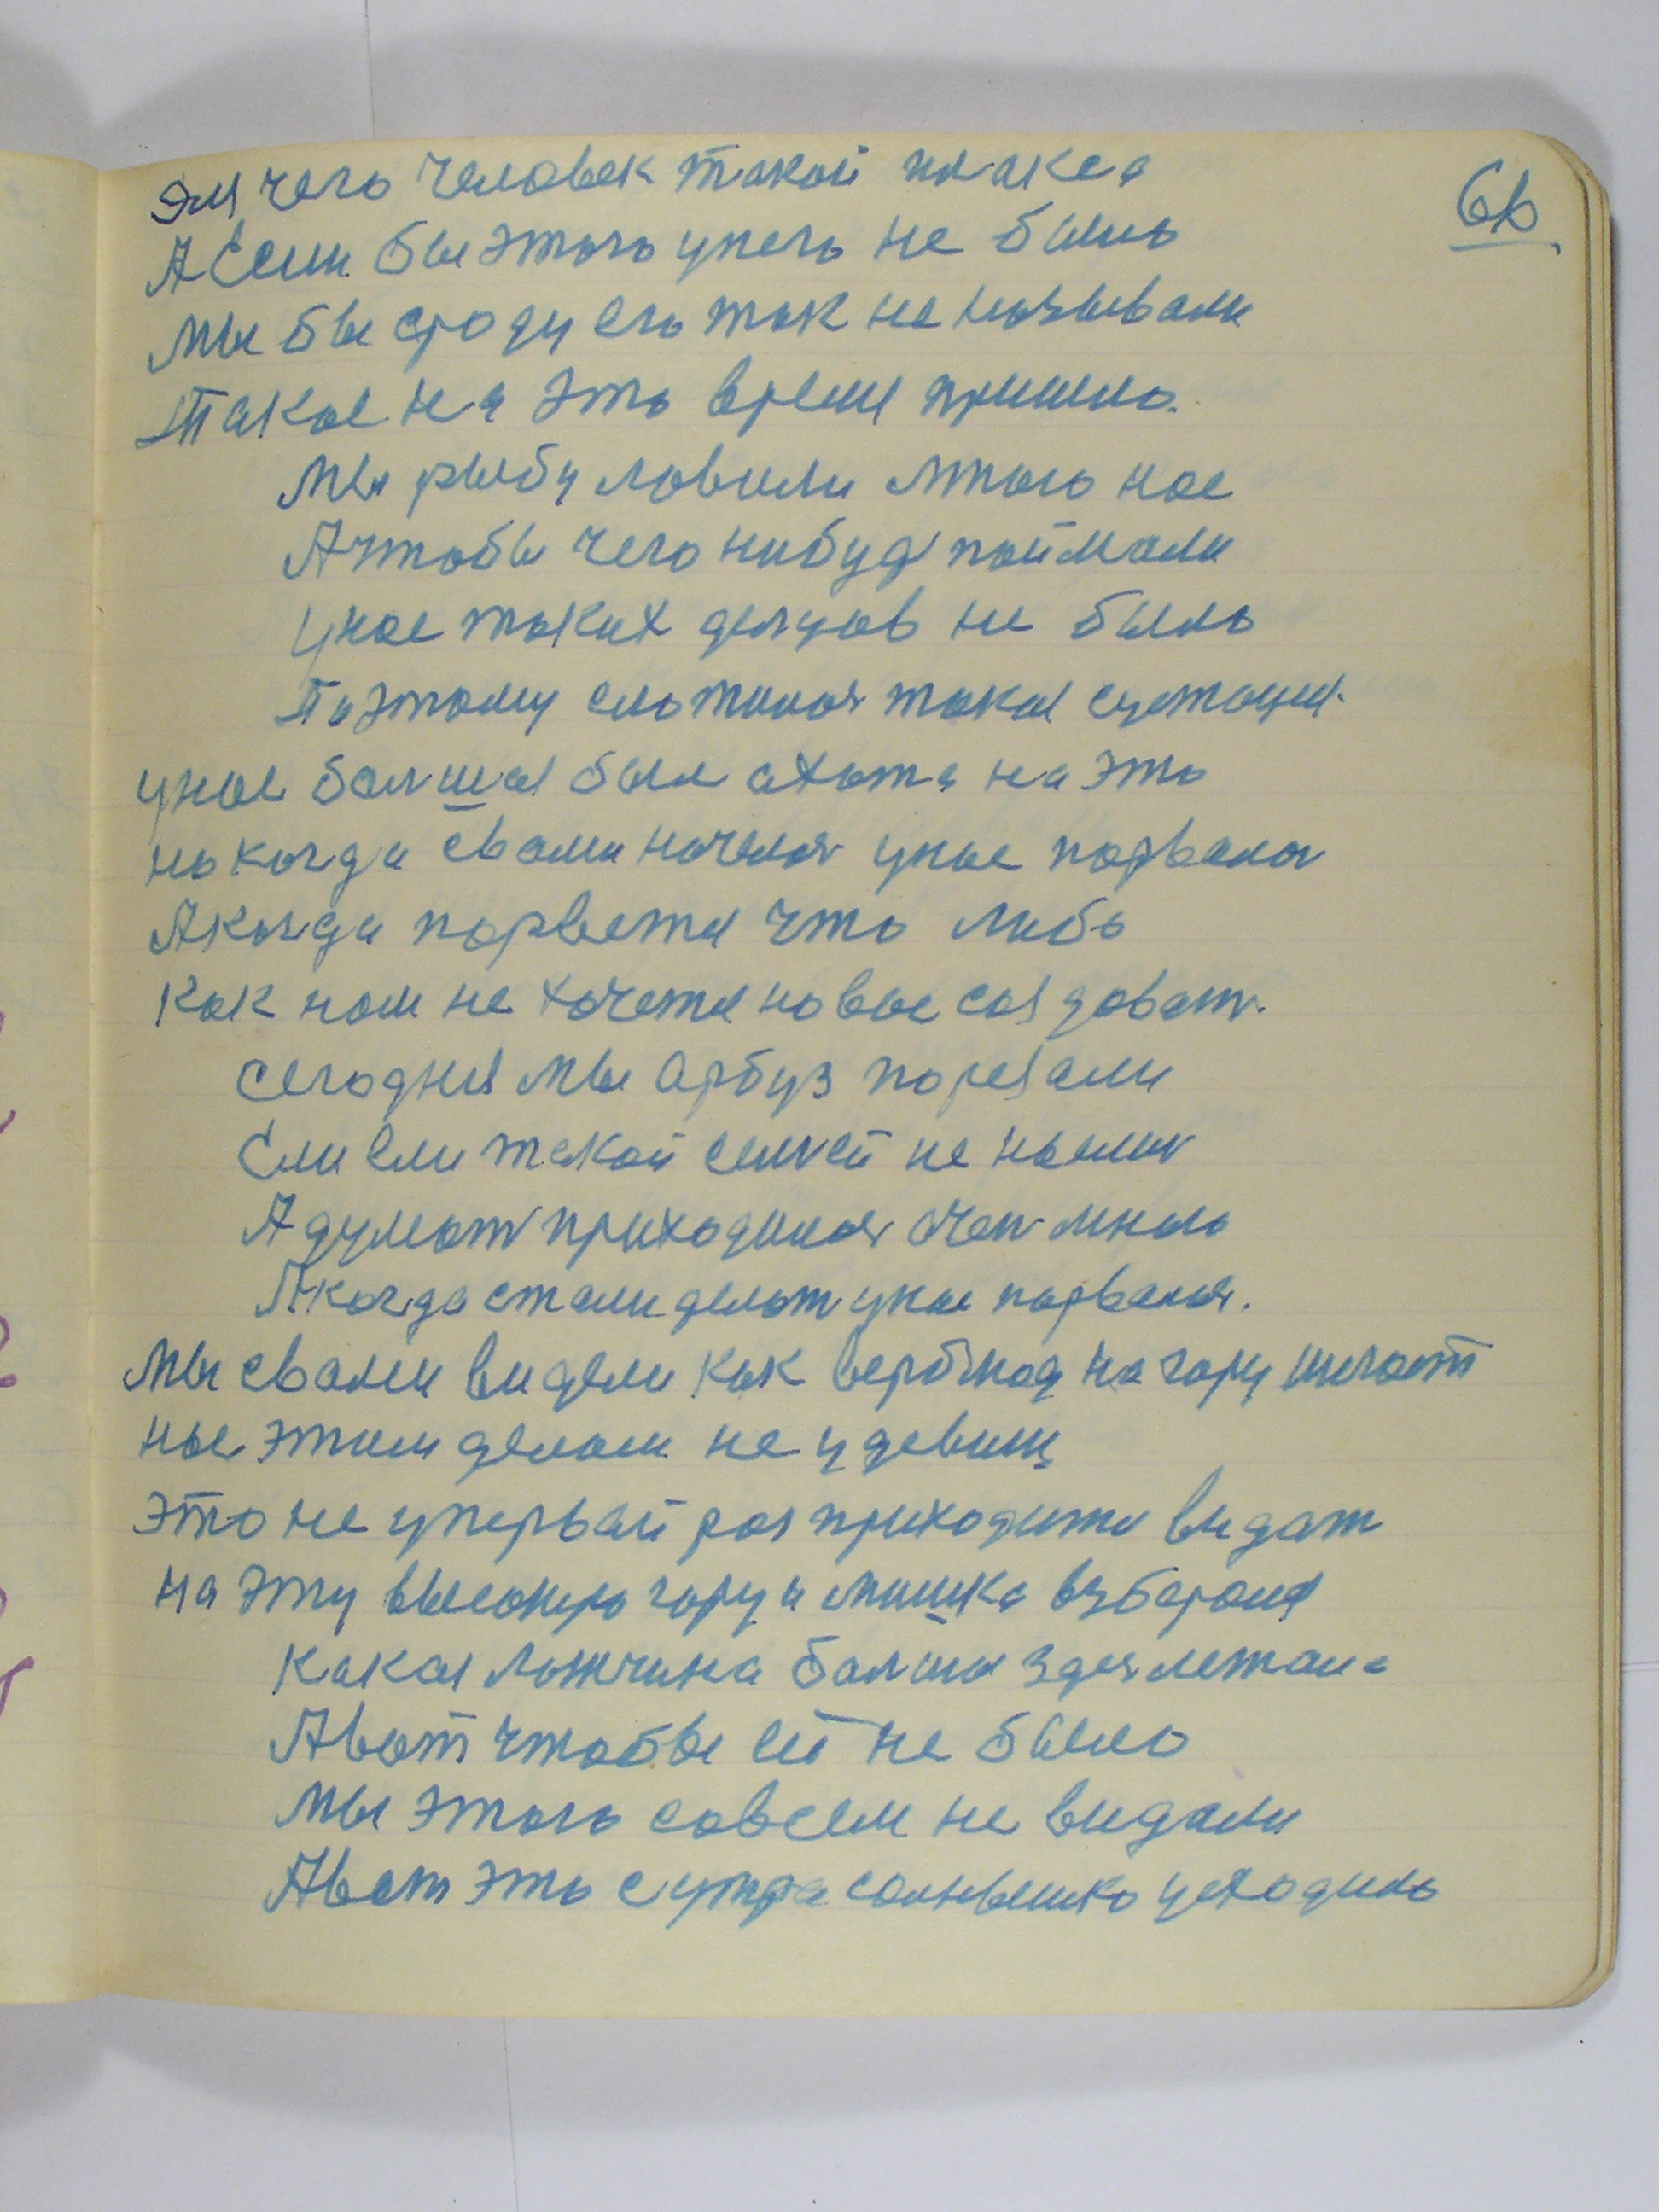 для чего человек такой плакса
66
А Если бы этого унего не было
Мы бы сроду его так не называли
Такое на это время пришло.
Мы рыбу ловили много ное
А чтобы чего нибуд поймали
Унас таких делцов не было
Поэтому сложилоя такая сутацыя.
унас болшая была ахота на это
но когда свами началоя унас порвалоя
А когда порветця что либо
Как нам не хочетця новае создоват.
сегодня мы Арбуз порезали
Ели ели такой семией не ыели
А думат приходилоя очен мново
А когда стали делат унас порвалоя.
Мы свами видели как верблюд на гору шегает
нас этим делом не удевиш
это не упервай раз приходитця видат
на эту высокую гору и мышка взбералая
Какая лощина болшая здея лежала
А вот чтобы ей не было
Мы этого совсем не видали
А вот это сутра солнышко усходило